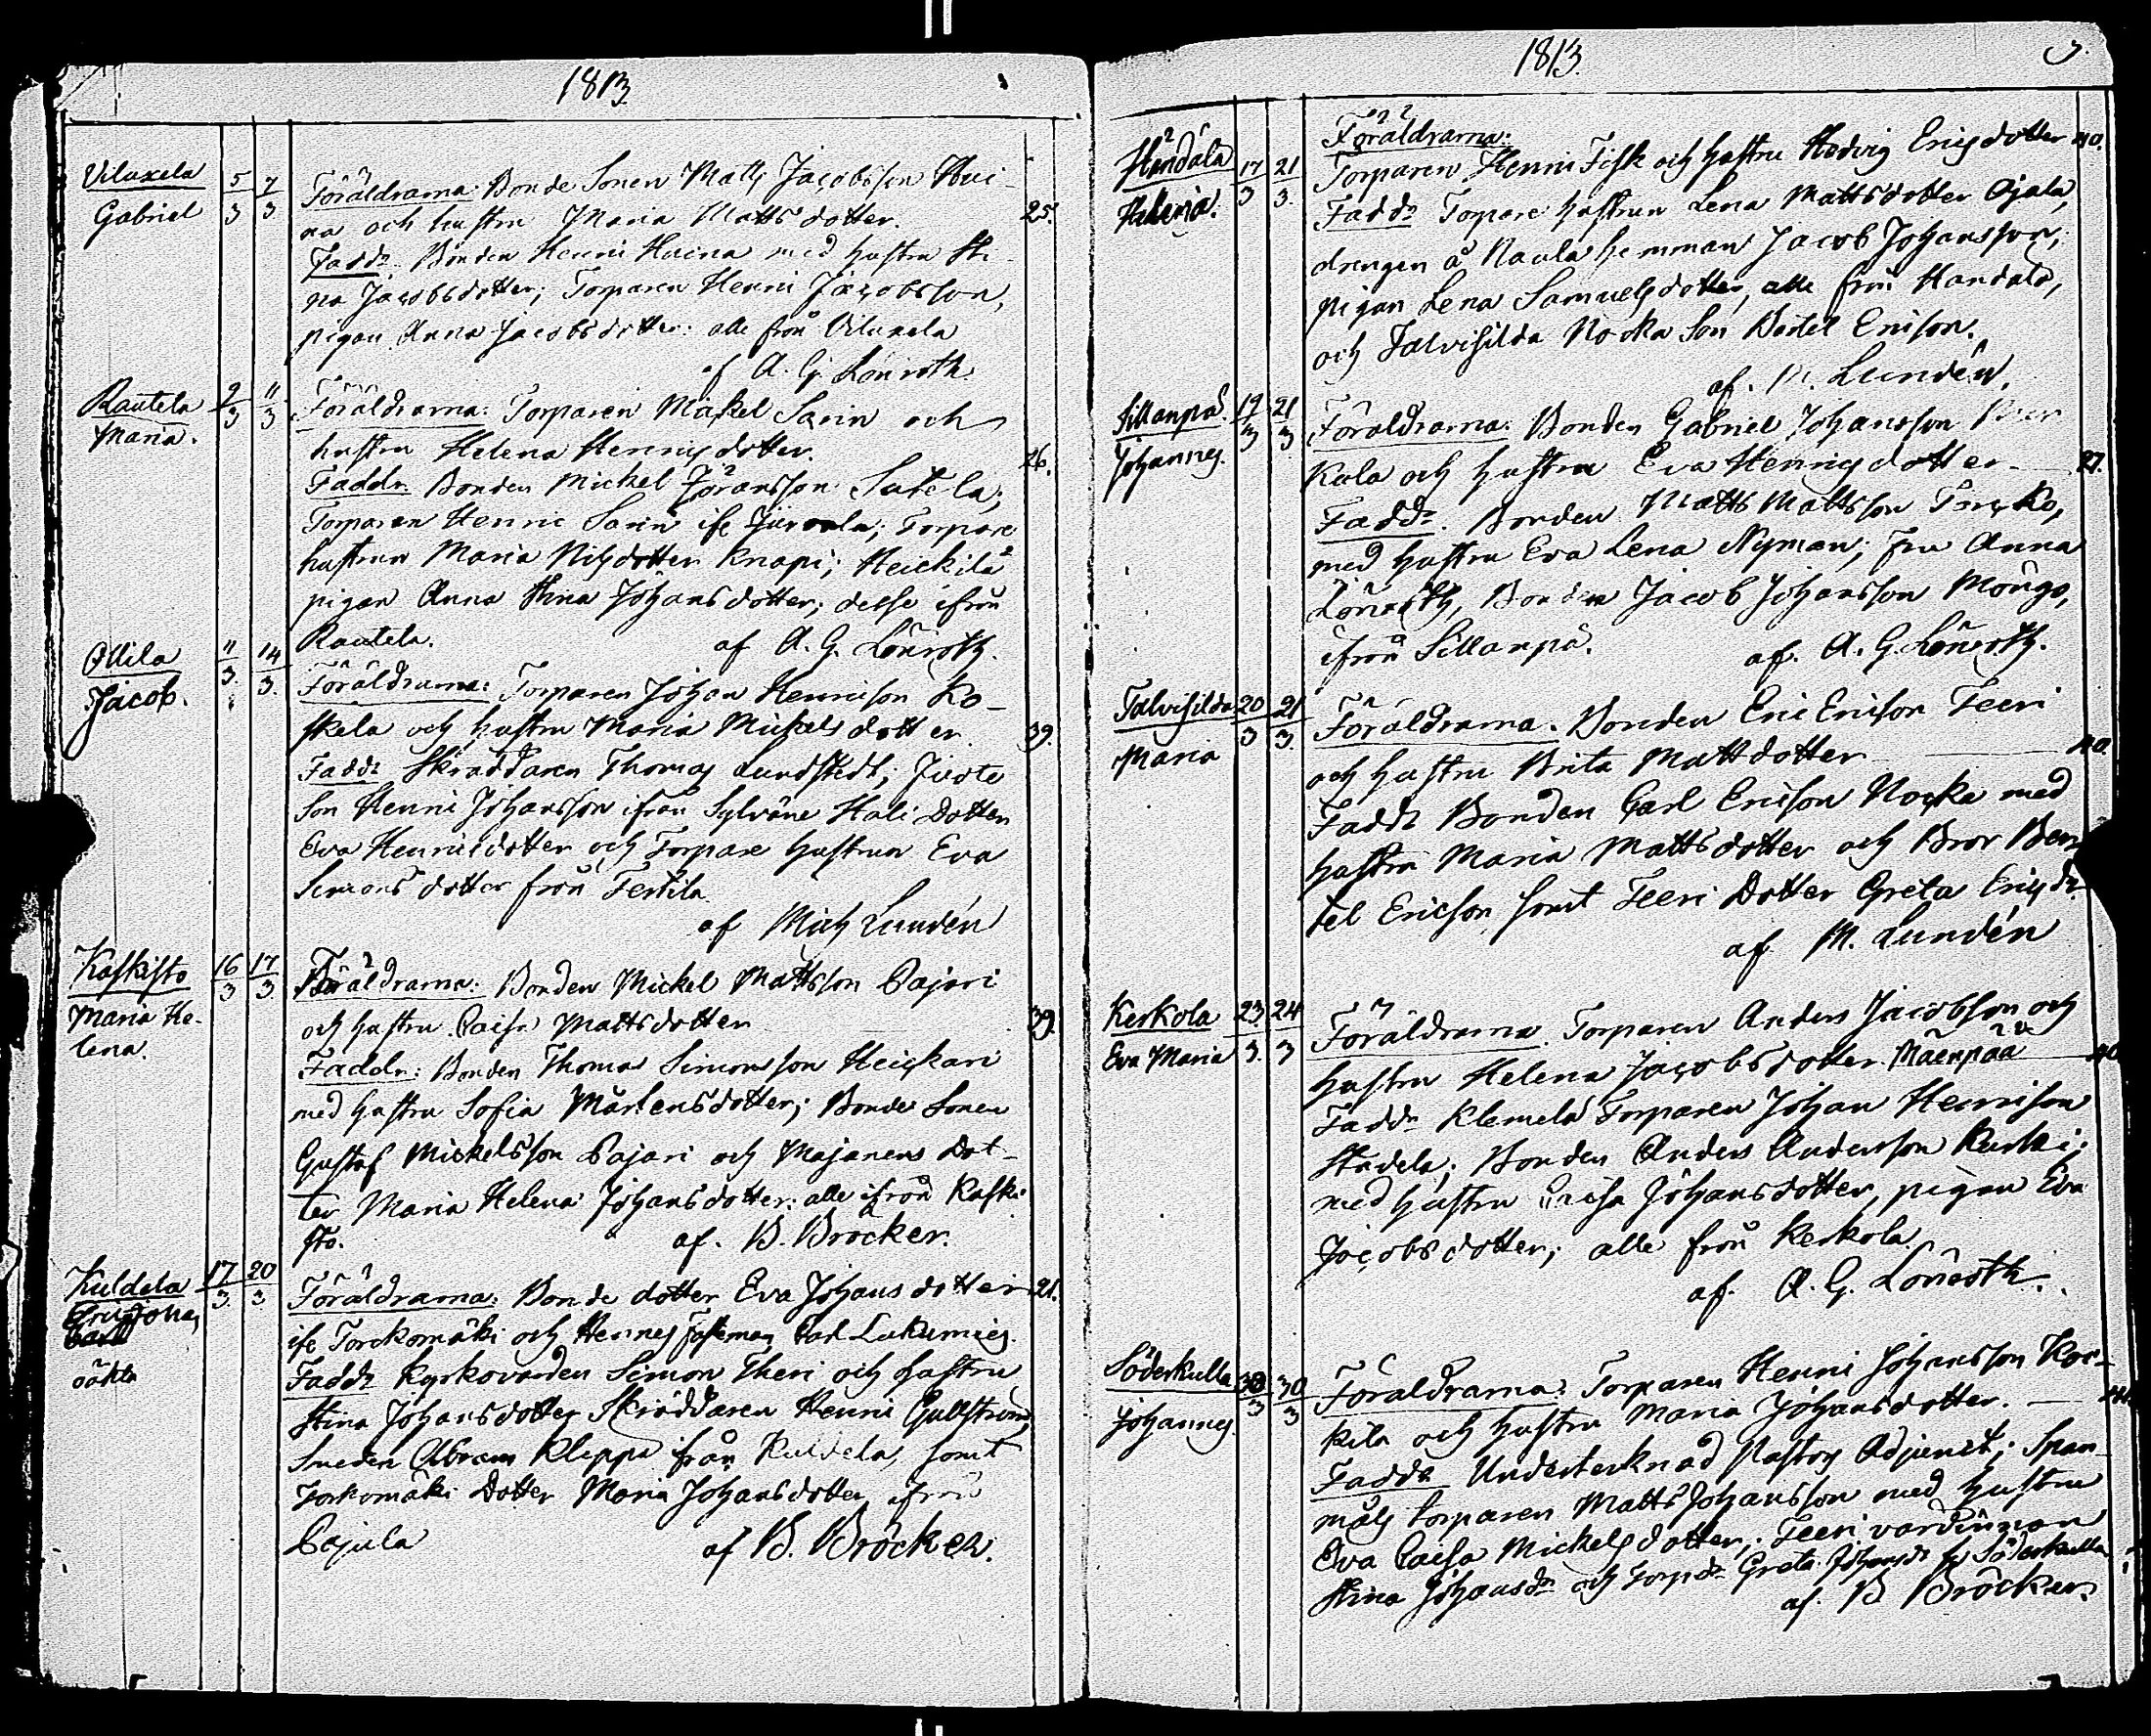 1813.
Viluxela 5/3 7/3 Föräldrarna: Bonde Sonen Matts Jacobsson Hui-
Gabriel na och hustru Maria Mattsdotter. 25.
Faddr. Bonden Henric Huina med hustru Sti-
na Jacobsdotter; Torparen Henric Jacobsson,
pigan Anna Jacobsdotter: alle från Viluxela
af A. G. Lönroth.
Rautela 9/3 11/3 Föräldrarna: Torparen Mickel Sarin och
Maria. hustru Helena Henricsdotter. 26.
Faddr. Bonden Mickel Göransson Sutela;
Torparen Henric Sarin ifr. Torpare
hustrun Maria Nilsdotter Knapi; Heickilä
pigan Anna Stina Johansdotter; desse ifrån
Rautela. af A. G. Lönroth.
Ollila 11/3 14/3 Föräldrarna: Torparen Johan Henricson Ko-
Jacob. skela och hustru Maria Mickelsdotter 39.
Faddr Skräddaren Thomas Lundstedt;
Son Henric Johansson ifrån Hali Dotter
Eva Henricsdotter och Torpare hustrun Eva
Simonsdotter från Tertila
af Mich Lundén
Kaskisto 16/3 17/3 Föräldrarna: Bonden Mickel Mattsson Pajari
Maria He- och hustru Caisa Mattsdotter 39.
lena. Faddr: Bonden Thomas Simonsson Heickari
med hustru Sofia Mårtensdotter; Bonde Sonen
Gustaf Mickelsson Pajari och Majanens Dot-
ter Maria Helena Johansdotter: alle ifrån Kaski-
sto. af. B. Bröcker.
Kuldela 17/3 20/3 Föräldrarna: Bonde dotter Eva Johansdotter 21.
ifr Torckomäki och Hennes Fästeman Carl
oäkta Faddr Kyrkovärden Simon Theri och hustru
Stina Johansdotter Skräddaren Henric Gullström,
Smeden Abram Kleppe ifrån Kuldela, samt
Torkomäki Dotter Maria Johansdotter ifrån
Pajula af B. Bröcker.
1813.
Händälä 17/3 21/3 Föräldrarna:
Torparen Henric Fisk och hustru Hedvig Ericsdotter 40.
Faddr Torpare hustrun Lena Mattsdotter Ojala,
drengen å Naula hemman Jacob Johansson;
pigan Lena Samuelsdotter, alle från Handala,
och Talvisilda Nocka Son Bertel Ericson.
af. M. Lundén.
Sillanpä. 19/3 21/3 Föräldrarna: Bonden Gabriel Johansson
Johannes. Kula och hustru Eva Henricsdotter 27.
Faddr. Bonden Matts Mattsson
med hustru Eva Lena Nyman; Fru Anna
Lönroth, Bonden Jacob Johansson Mongo,
ifrån Sillanpä. af. A. G. Lönroth.
Talvisilda 20/3 21/3 Föräldrarna: Bonden Eric Ericson Teeri
Maria och hustru Brita Mattsdotter 40.
Faddr Bonden Carl Ericson Nocka med
hustru Maria Mattsdotter och Bror Ber-
tel Ericson samt Teeri Dotter Greta Ericsdr
af M. Lundén
Kerkola 23/3 24/3 Föräldrarna Torparen Anders Jacobsson och
Eva Maria hustru Helena Jacobsdotter Mäenpää 40
Faddr Klemelä Torparen Johan Henricson
Bonden Anders Andersson Kurki;
med hustru Caisa Johansdotter, pigan Eva
Jacobsdotter; alle från Kerkola
af. A. G. Lönroth.
Söderkulla 30/3 30/3 Föräldrarna: Torparen Henric Johansson Kor-
Johannes. kila och hustru Maria Johansdotter.
Faddr Undertecknad Pastors Adjunct; Span-
måls torparen Matts Johansson med hustru
Eva Caisa Mickelsdotter; Teeri värdinnan
Stina Johansdr och Torpdr Greta Johansdr fr Söderkulla
af. B Bröcker